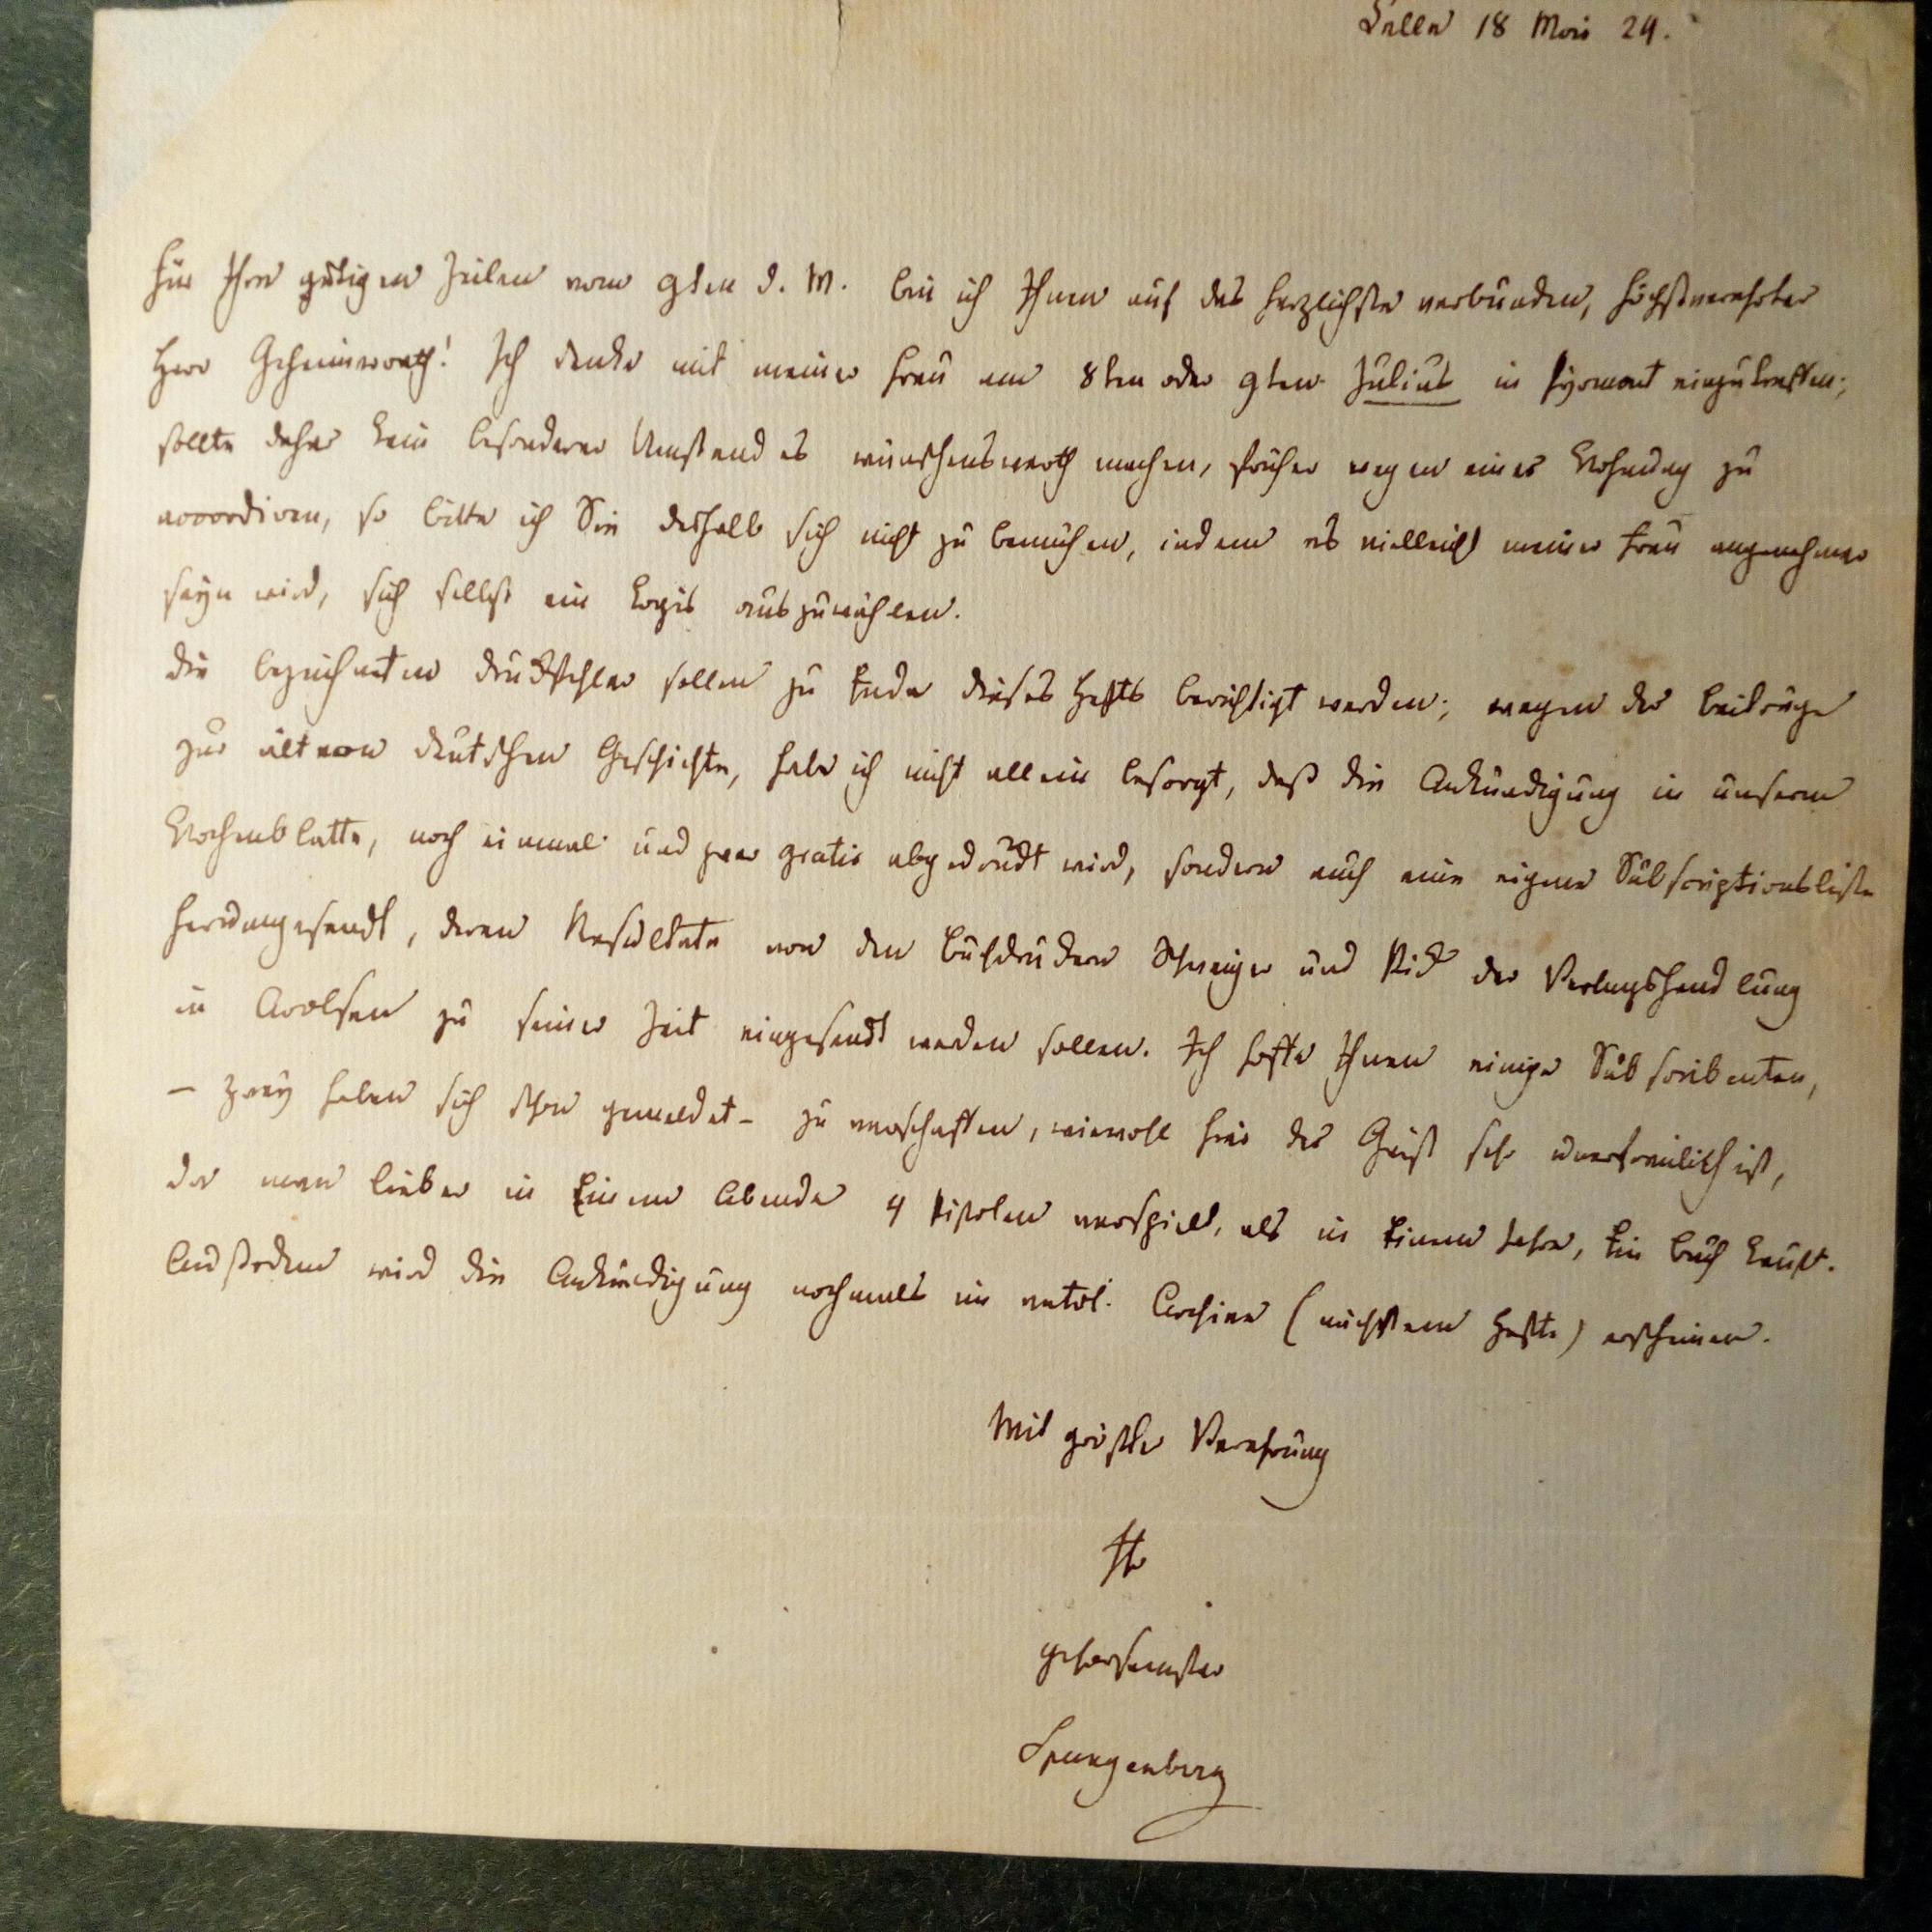 Celle 18 Mai 24.
Für Ihre gütigen Zeilen vom 9ten d. M. bin ich Ihnen auf das herzlichste verbunden, höchstverehrter
Herr Geheimerath! Ich denke mit meiner Frau am 8ten oder 9ten Julius in Pyrmont einzutreffen;
sollte daher kein besonderer Umstand es wünschenswerth machen, früher wegen einer Wohnung zu
accordiren, so bitte ich Sie deshalb sich nicht zu bemühen, indem es vielleicht meiner Frau angenehmer
seyn wird, sich selbst ein Logis auszuwählen.
Die bezeichneten Druckfehler sollen zu Ende dieses Hefts berichtigt werden; wegen der Beiträge
zur älteren deutschen Geschichte, habe ich nicht allein besorgt, daß die Ankündigung in unserem
Wochenblatte, noch einmal und zwar gratis abgedruckt wird, sondern auch eine eigene Subscriptionsliste
herumgesandt, deren Resultate von den Buchdruckern Schweiger und Pick der Verlagshandlung
in Arolsen zu seiner Zeit eingesandt werden sollen. Ich hoffe Ihnen einige Subscribenten,
– zwey haben sich schon gemeldet – zu verschaffen, wiewohl hier der Geist sehr unerfreulich ist,
da man lieber in Einem Abende 4 Pistolen verspielt, als in Einem Jahre, Ein Buch kauft.
Außerdem wird die Ankündigung nochmals im vatrl. Archive (nächstem Hefte) erscheinen.
Mit größter Verehrung
Ihr
gehorsamster
Spangenberg